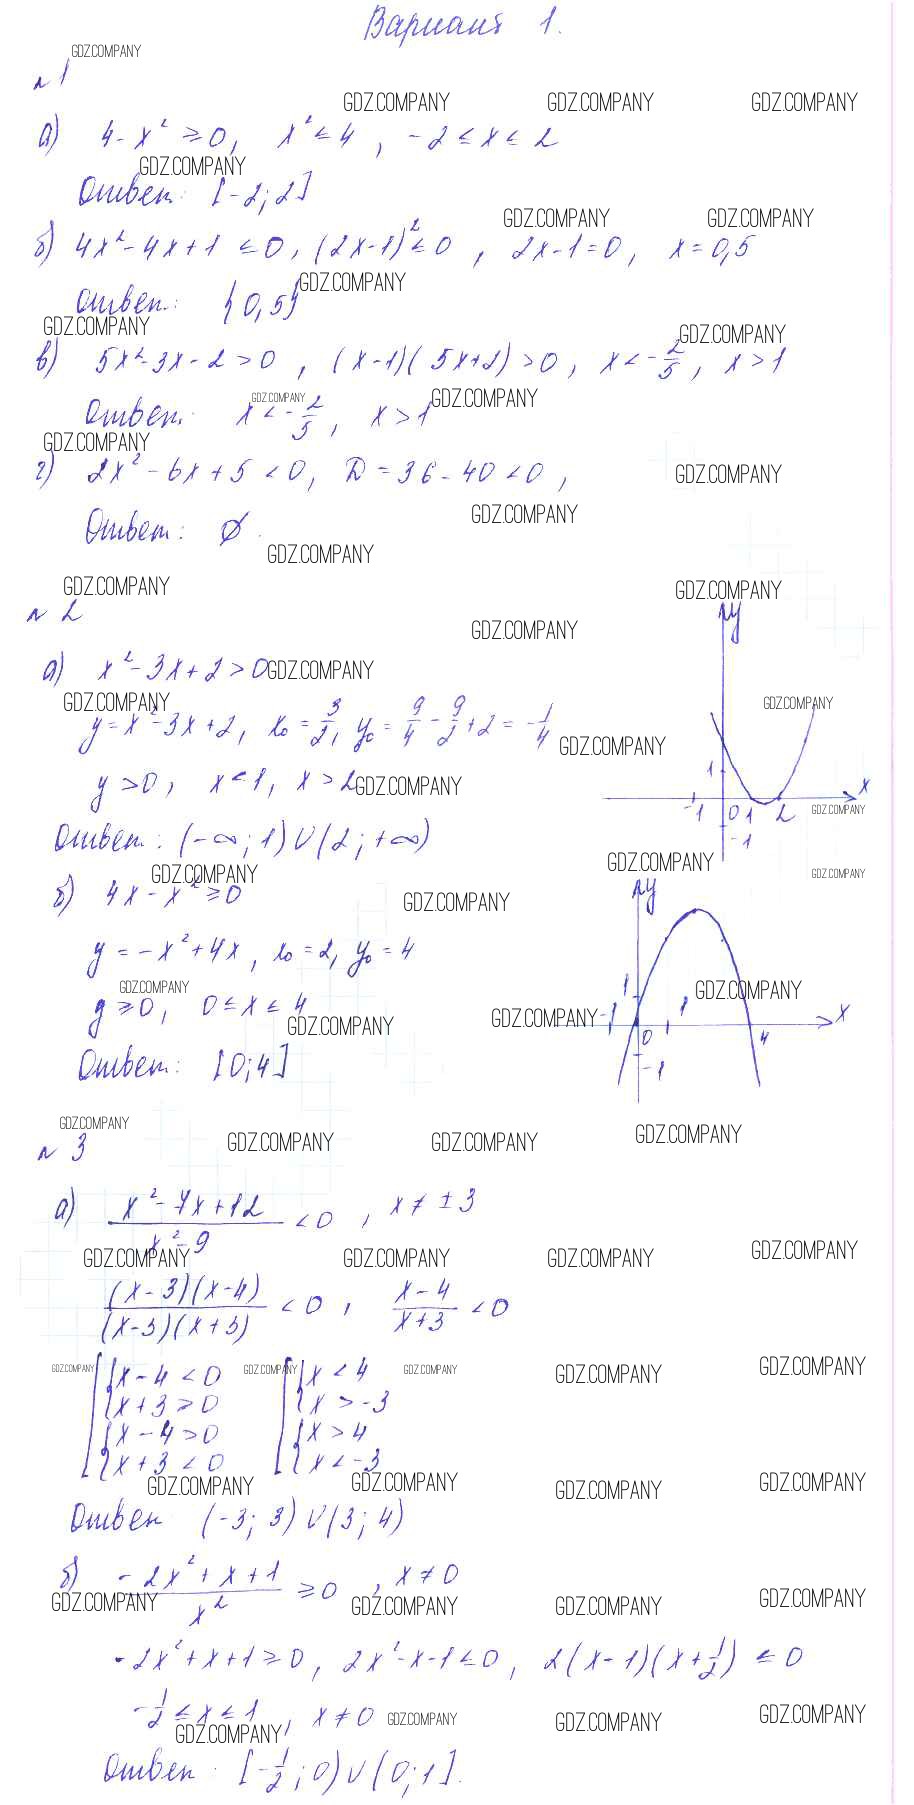 Вариант 1.
GDZ.COMPANY
№1
GDZ.COMPANY GDZ.COMPANY GDZ.COMPANY
а) 4-x² ≥0, x² ≤4, -2≤x≤2
GDZ.COMPANY
Ответ: [-2;2]
GDZ.COMPANY GDZ.COMPANY
б) 4x²-4x+1 ≤0, (2x-1)² ≤0, 2x-1=0, x=0,5
GDZ.COMPANY
Ответ: {0,5}
GDZ.COMPANY GDZ.COMPANY
в) 5x²-3x-2>0, (x-1)(5x+2)>0, x<-2/5, x>1
GDZ.COMPANY GDZ.COMPANY
Ответ: x<-2/5, x>1
GDZ.COMPANY
г) 2x²-6x+5<0, D=36-40<0,
GDZ.COMPANY
GDZ.COMPANY
Ответ: ∅.
GDZ.COMPANY
GDZ.COMPANY GDZ.COMPANY
№2
GDZ.COMPANY
y
а) x²-3x+2>0
GDZ.COMPANY
GDZ.COMPANY GDZ.COMPANY
y=x²-3x+2, x₀=3/2, y₀=9/4-9/2+2=-1/4
GDZ.COMPANY
y>0, x<1, x>2
GDZ.COMPANY
1 x
-1 0 1 2
GDZ.COMPANY
-1
Ответ: (-∞;1)∪(2;+∞)
GDZ.COMPANY GDZ.COMPANY GDZ.COMPANY
б) 4x-x²≥0
GDZ.COMPANY
y
y=-x²+4x, x₀=2, y₀=4
GDZ.COMPANY GDZ.COMPANY
y≥0, 0≤x≤4
GDZ.COMPANY GDZ.COMPANY
1
-1 0 1 4 x
-1
Ответ: [0;4]
GDZ.COMPANY
№3
GDZ.COMPANY GDZ.COMPANY GDZ.COMPANY
а) (x²-7x+12)/(x²-9) <0, x≠±3
GDZ.COMPANY GDZ.COMPANY GDZ.COMPANY GDZ.COMPANY
(x-3)(x-4)/(x-3)(x+3) <0, (x-4)/(x+3) <0
GDZ.COMPANY GDZ.COMPANY GDZ.COMPANY GDZ.COMPANY GDZ.COMPANY
[{x-4<0 [{x<4
{x+3>0 {x>-3
{x-4>0 {x>4
{x+3<0 {x<-3
GDZ.COMPANY GDZ.COMPANY GDZ.COMPANY GDZ.COMPANY
Ответ (-3;3)∪(3;4)
б) (-2x²+x+1)/x² ≥0, x≠0
GDZ.COMPANY GDZ.COMPANY GDZ.COMPANY GDZ.COMPANY
-2x²+x+1≥0, 2x²-x-1≤0, 2(x-1)(x+1/2) ≤0
-1/2≤x≤1, x≠0
GDZ.COMPANY GDZ.COMPANY GDZ.COMPANY GDZ.COMPANY
Ответ: [-1/2;0)∪(0;1].